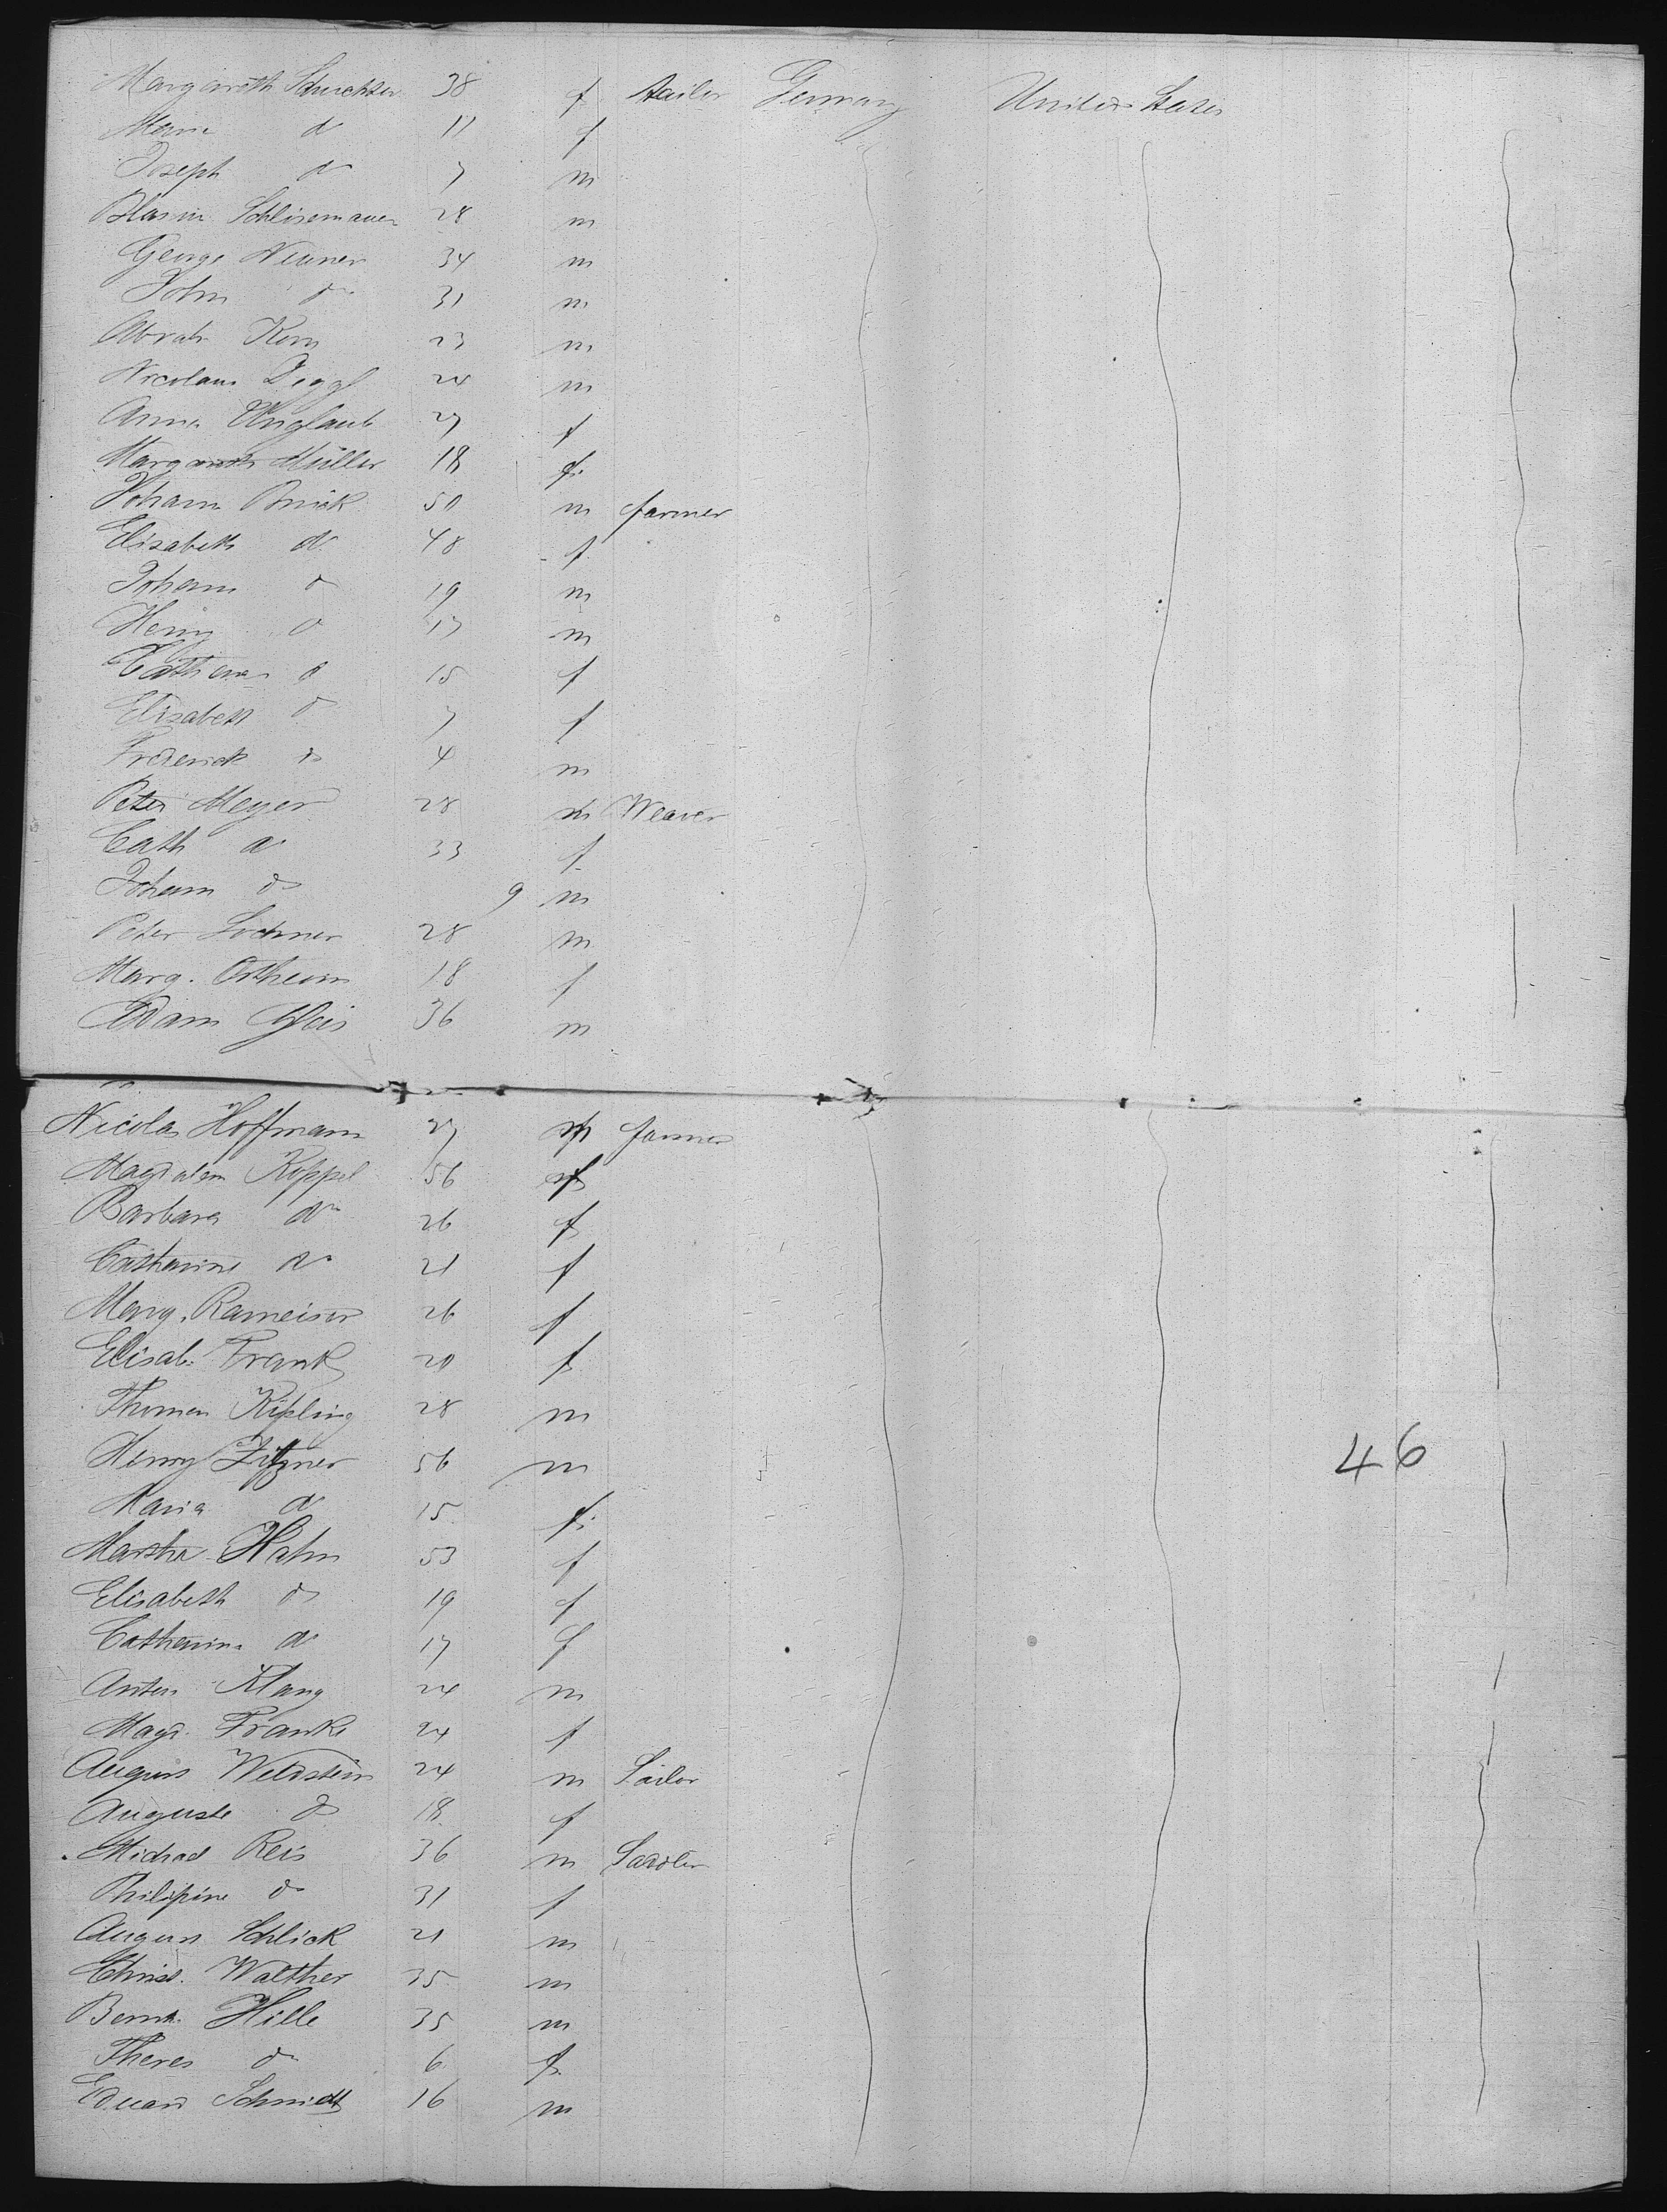 Margareth Schuchter 38 f tailor Germany United States
Maria do 11 f
Joseph do 7 m
Blasius Schlisemauer 28 m
George Neuner 34 m
John do 31 m
Abrah. Korn 23 m
Nicolaus 24 m
Anna Unglaub 27 f
Margareth Müller 18 f.
Johann 50 m farmer
Elisabeth do 48 f
Johann do 19 m
Henry do 17 m
Catharina do 15 f
Elizabeth do 7 f
Frederick do 4 m
Peter Meyer 28 m Weaver
Cath do 33 f
Johann do 9 m
Peter Lochner 28 m
Marg. Ostheim 18 f
Adam 36 m
Nicolas Hoffmann 27 m farmer
Magdalena Koppel 56 f
Barbara do 26 f
Catharine do 21 f
Marg. Rameiser 26 f
Elisab. Frank 20 f
Thomas Kipling 28 m
Henry Zitzner 56 m
46
Maria do 15 f.
Martha Hahn 53 f
Elisabeth do 19 f
Catharina do 17 f
Anton Klang 24 m
Magd. Franke 24 f
August Weldstein 24 m Sailor
Auguste do 18 f
Michael Reis 36 m Sadler
Philipine do 31 f
August Schlick 21 m
Christ. Walther 35 m
Bernh. Hille 35 m
Theres do 6 f.
Eduard Schmidt 16 m